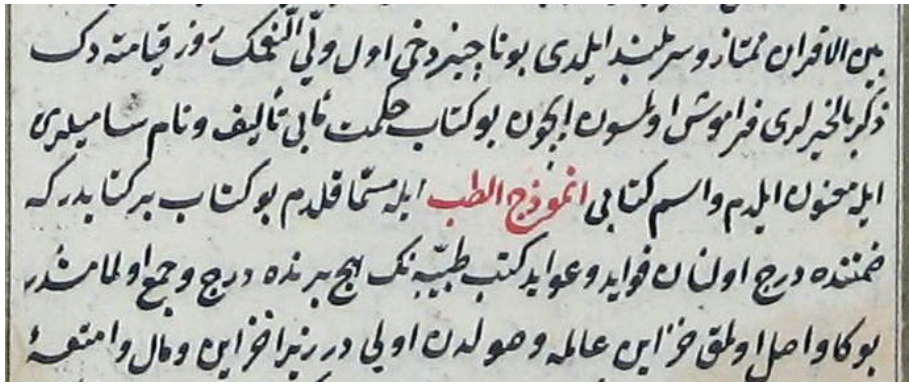 بين الاقران ممتاز و سربلند ايلدى بو ناچيز دخى اول ولىّ النّعمك روز قيامته دك
ذكر بالخيرلرى فراموش اولمسون ايچون بو كتاب حكمت مآبى تأليف و نام ساميلرى
ايله معنون ايلدم و اسم كتابى انموذج الطب ايله مسمّا قلدم بو كتاب بر كتابدر كه
ضمننده درج اولنان فوايد و عوايد كتب طبيّه نك هيچ برنده درج و جمع اولمامشدر
بوكا واصل اولمق خزاين عالمه وصولدن اولى در زيرا خزاين و مال و امتعهٔ